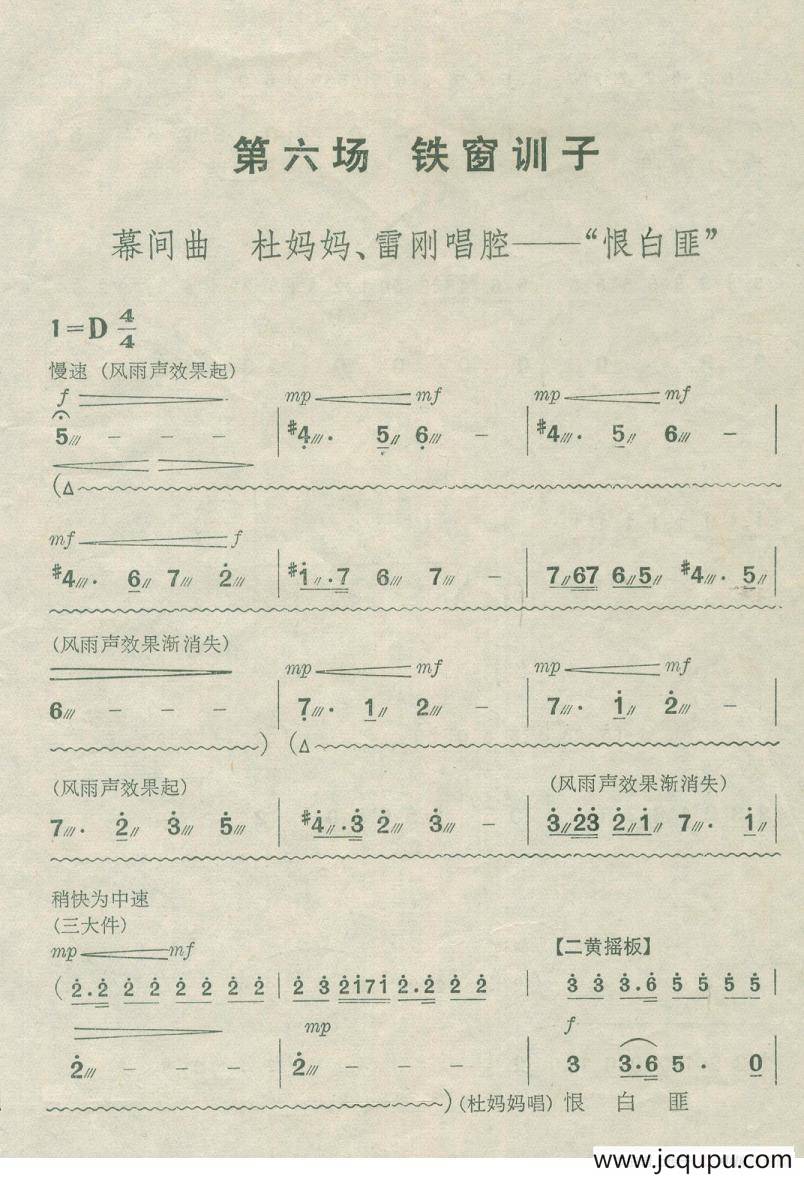 第六场 铁窗训子
幕间曲 杜妈妈、雷刚唱腔——“恨白匪”
1=D 4/4
慢速 (风雨声效果起)
f mp mf mp mf
5/// – – – | #4̣///· 5̣// 6̣// – | #4///· 5// 6// –
(△
mf f
#4///· 6// 7// 2̇// | #1̇//·7 6// 7// – | 7//67 6//5// #4///· 5// |
(风雨声效果渐消失)
mp mf mp mf
6/// – – – | 7̣///· 1// 2/// – | 7///· 1̇// 2̇// –
) (△
(风雨声效果起) (风雨声效果渐消失)
7///· 2̇// 3̇// 5̇// | #4̇//·3̇ 2̇// 3̇// – | 3̇//2̇3̇ 2̇//1̇// 7///· 1̇// |
稍快为中速
(三大件)
mp mf 【二黄摇板】
( 2̇·2̇ 2̇ 2̇ 2̇ 2̇ 2̇ 2̇ | 2̇ 3̇ 2̇1̇71̇ 2̇·2̇ 2̇ 2̇ | 3̇ 3̇ 3̇·6̇ 5̇ 5̇ 5̇ 5̇ |
mp f
2̇/// – – – | 2̇/// – – – | 3 3·6 5 · 0
) (杜妈妈唱) 恨 白 匪
www.jcqupu.com